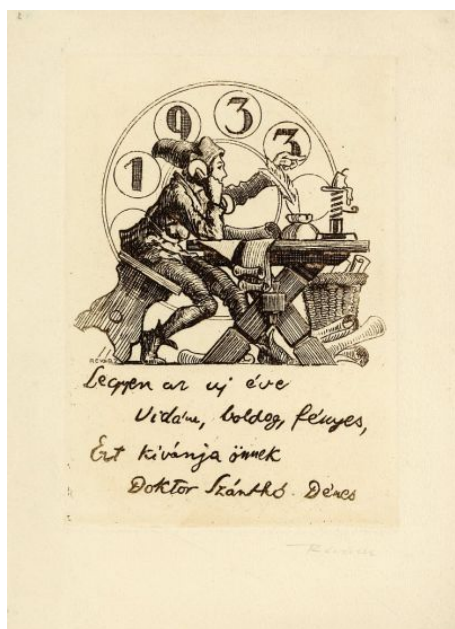 1 9 3 3
Legyen az uj éve
Vidám, boldog, fényes,
Ezt kivánja önnek
Doktor Szánthó Dénes